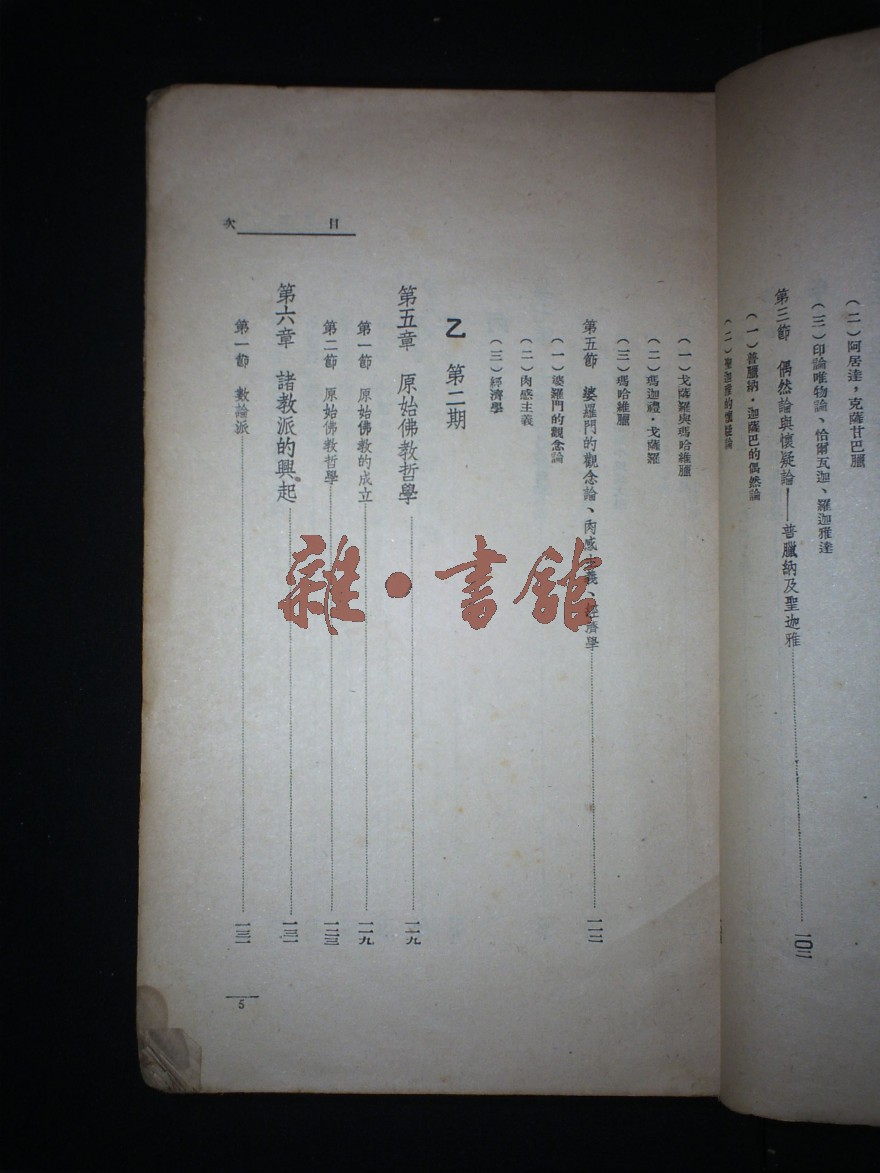 （二）阿居達，克薩甘巴臘
（三）印論唯物論、恰爾瓦迦、羅迦雅達
第三節　偶然論與懷疑論——普臘納及聖迦雅 一〇二
（一）普臘納·迦薩巴的偶然論
（二）聖迦雅的懷疑論
（一）戈薩羅與瑪哈維臘
（二）瑪迦禮·戈薩羅
（三）瑪哈維臘
第五節　婆羅門的觀念論、肉感主義、經濟學 一一二
（一）婆羅門的觀念論
（二）肉感主義
（三）經濟學
乙　第二期
第五章　原始佛教哲學 一一九
第一節　原始佛教的成立 一一九
第二節　原始佛教哲學 一二三
第六章　諸教派的興起 一三一
第一節　數論派 一三一
目次
5
雜·書館